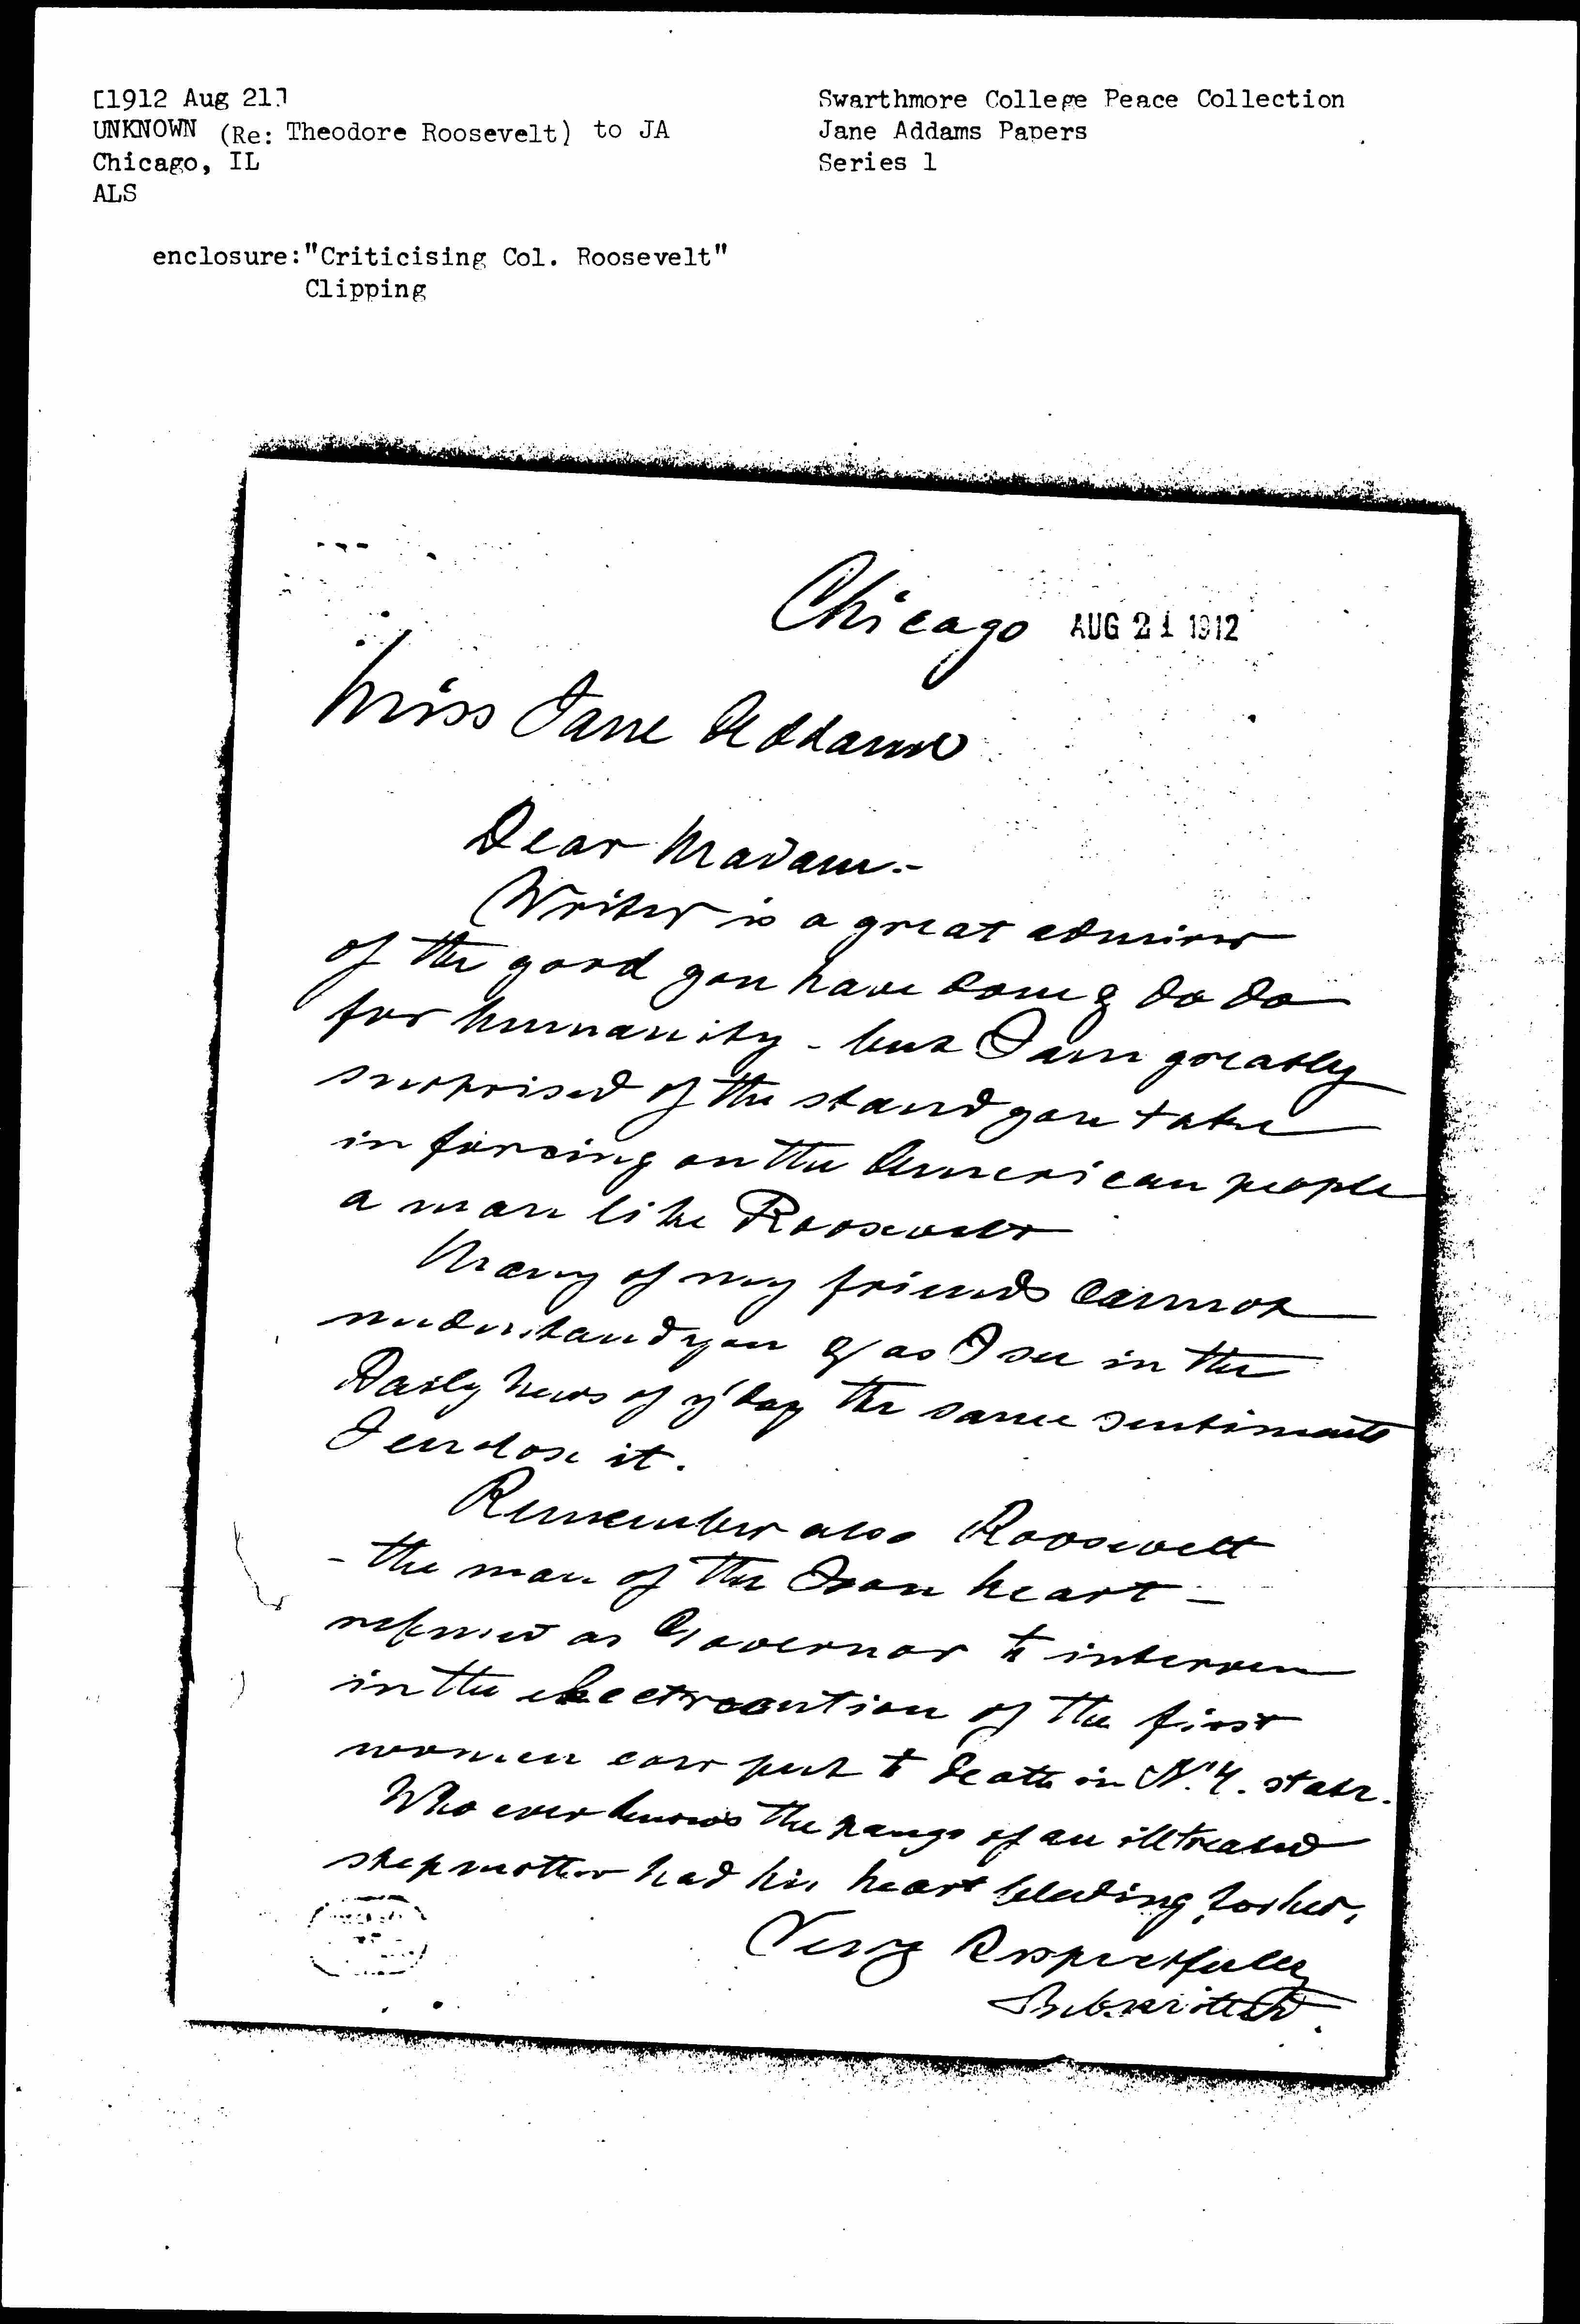 [1912 Aug 21]
UNKNOWN (Re: Theodore Roosevelt) to JA
Chicago, IL
ALS
enclosure:"Criticising Col. Roosevelt"
Clipping
Swarthmore College Peace Collection
Jane Addams Papers
Series 1
Chicago AUG 21 1912
Miss Jane Addams
Dear Madam.-
Writer is a great admirer
of the good you have done & do do
for humanity - but I am greatly
surprised of the stand you take
in forcing on the American people
a man like Roosevelt
Many of my friends cannot
understand you & as I see in the
Daily News of y'day the same sentiments
I enclose it.
Remember also Roosevelt
- the man of the Iron heart -
refused as Governor to intervene
in the electrocution of the first
women ever put to death in N.Y. state.
Who ever knows the pangs of an illtreated
stepmother had his heart bleeding for her.
Very Respectfully
Submitted.